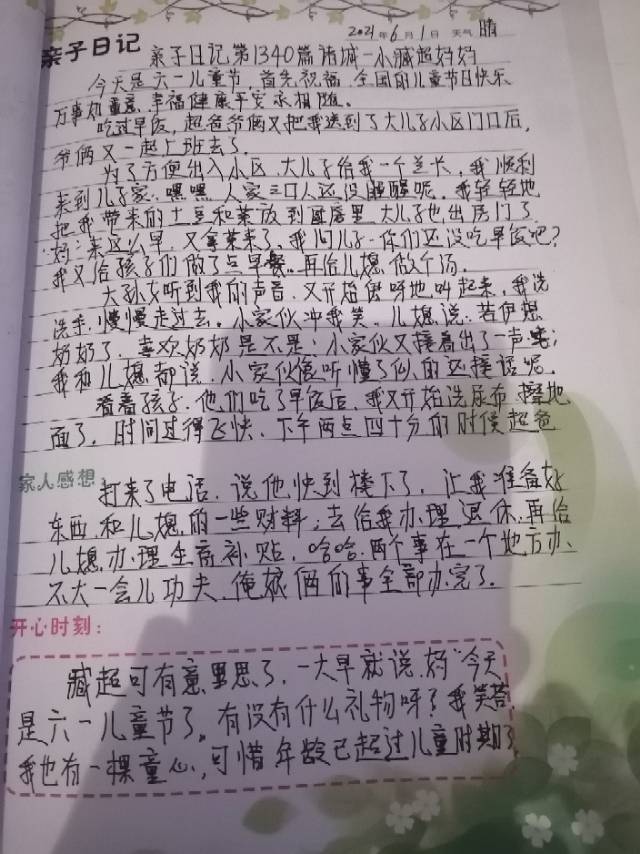 2021年6月1日 天气 晴
亲子日记 亲子日记第1340篇诸城一小臧超妈妈
今天是六一儿童节,首先祝福,全国的儿童节日快乐
万事如意,幸福健康平安永相随。
吃过早饭,超爸爷俩又把我送到了大儿子小区门口后,
爷俩又一起上班去了。
为了方便出入小区,大儿子给我一个兰卡,我顺利
来到儿子家,嘿嘿,人家三口人还没睡醒呢。我轻轻地
把我带来的土豆和菜放到厨房里,大儿子也出房门了
妈:来这么早,又拿菜来了,我问儿子,你们还没吃早饭吧?
我又给孩子们做了点早餐,再给儿媳做个汤。
大孙女听到我的声音,又开始伊呀地叫起来,我洗
洗手,慢慢走过去。小家伙冲我笑,儿媳说:若伊想
奶奶了,喜欢奶奶是不是;小家伙又接着出了一声
我和儿媳都说,小家伙像听懂了似的还接话呢。
看着孩子,他们吃了早饭后,我又开始洗尿布,擦地
面了,时间过得飞快,下午两点四十分的时候超爸
家人感想 打来了电话,说他快到楼下了,让我准备好
东西,和儿媳的一些材料;去给我办理退休,再给
儿媳办理生育补贴,哈哈,两个事在一个地方办,
不大一会儿功夫,俺娘俩的事全部办完了。
开心时刻:
臧超可有意思了,一大早就说,妈"今天
是六一儿童节了,有没有什么礼物呀?我笑答
我也有一棵童心,可惜年龄已超过儿童时期了